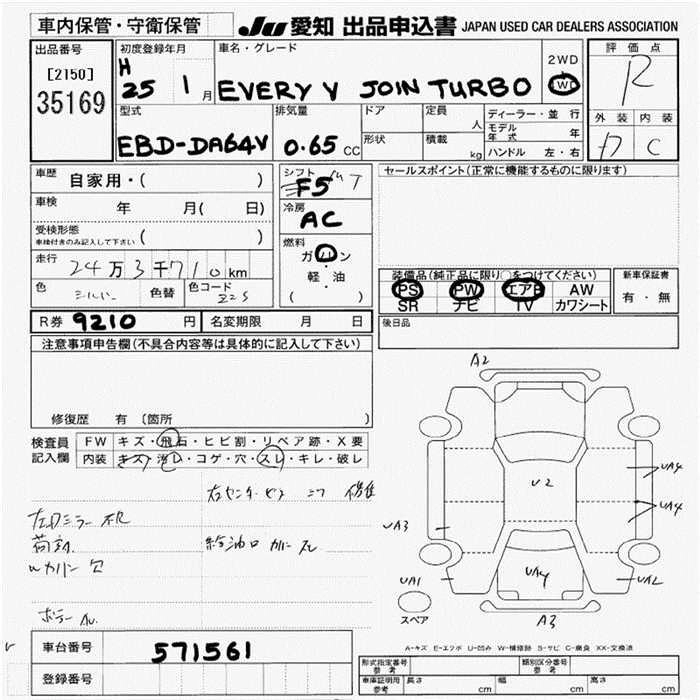 車内保管・守衛保管 JU 愛知 出品申込書 JAPAN USED CAR DEALERS ASSOCIATION
出品番号 初度登録年月 車名・グレード 2WD 評価点
[2150] H 25 1 月 EVERY V JOIN TURBO 4WD R
35169 外装 内装
型式 排気量 ドア 定員 人 ディーラー・並行
EBD-DA64V 0.65 CC 形状 積載 kg モデル年式 年 C
ハンドル 左・右
車歴 自家用・( ) シフト F5 セールスポイント(正常に機能するものに限ります)
車検 年 月( 日) 冷房 AC
受検形態 車検付きのみ記入して下さい ( )
燃料 ガソリン・軽・油 ( )
走行 24万3千710km
色 シルバー 色替 色コード Z2S
装備品(純正品に限り○をつけてください) 新車保証書
PS PW エアB AW 有・無
SR ナビ TV カワシート
R券 9210 円 名変期限 月 日 後日品
注意事項申告欄(不具合内容等は具体的に記入して下さい)
修復歴 有 〔箇所 〕
検査員記入欄 FW キズ・飛石・ヒビ割・リペア跡・X要
内装 キズ・汚レ・コゲ・穴・スレ・キレ・破レ
給油口 カバー
A2
U2
UA4
UA4
UA3
UA1 UA4 UA2
スペア A3
A-キズ E-エクボ U-凹み W-補修跡 S-サビ C-腐食 XX-交換済
車台番号 571561
登録番号
形式指定番号 参考 類別区分番号 参考
車庫証明用 参考 長さ cm 幅 cm 高さ cm